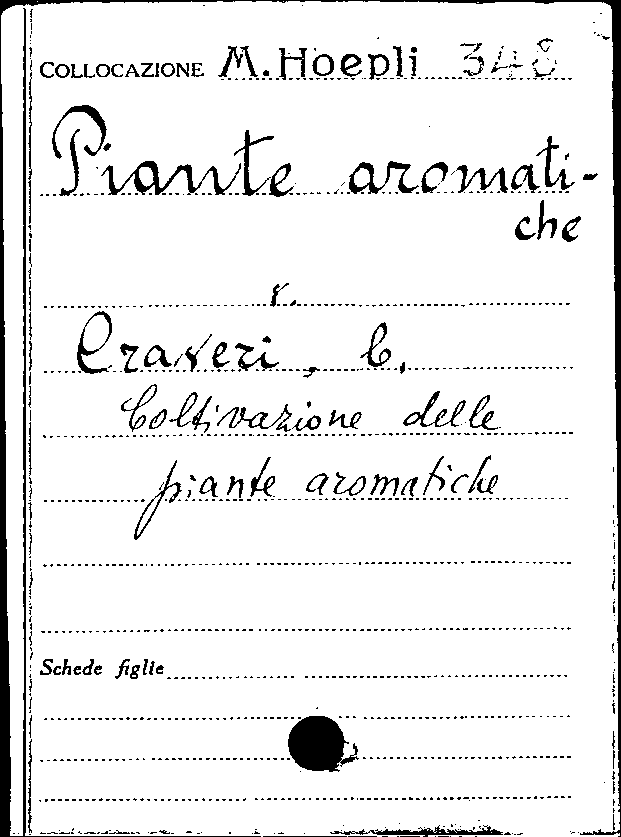 COLLOCAZIONE M. Hoepli 348
Piante aromati-
che
v.
Craveri, C.
Coltivazione delle
piante aromatiche
Schede figlie